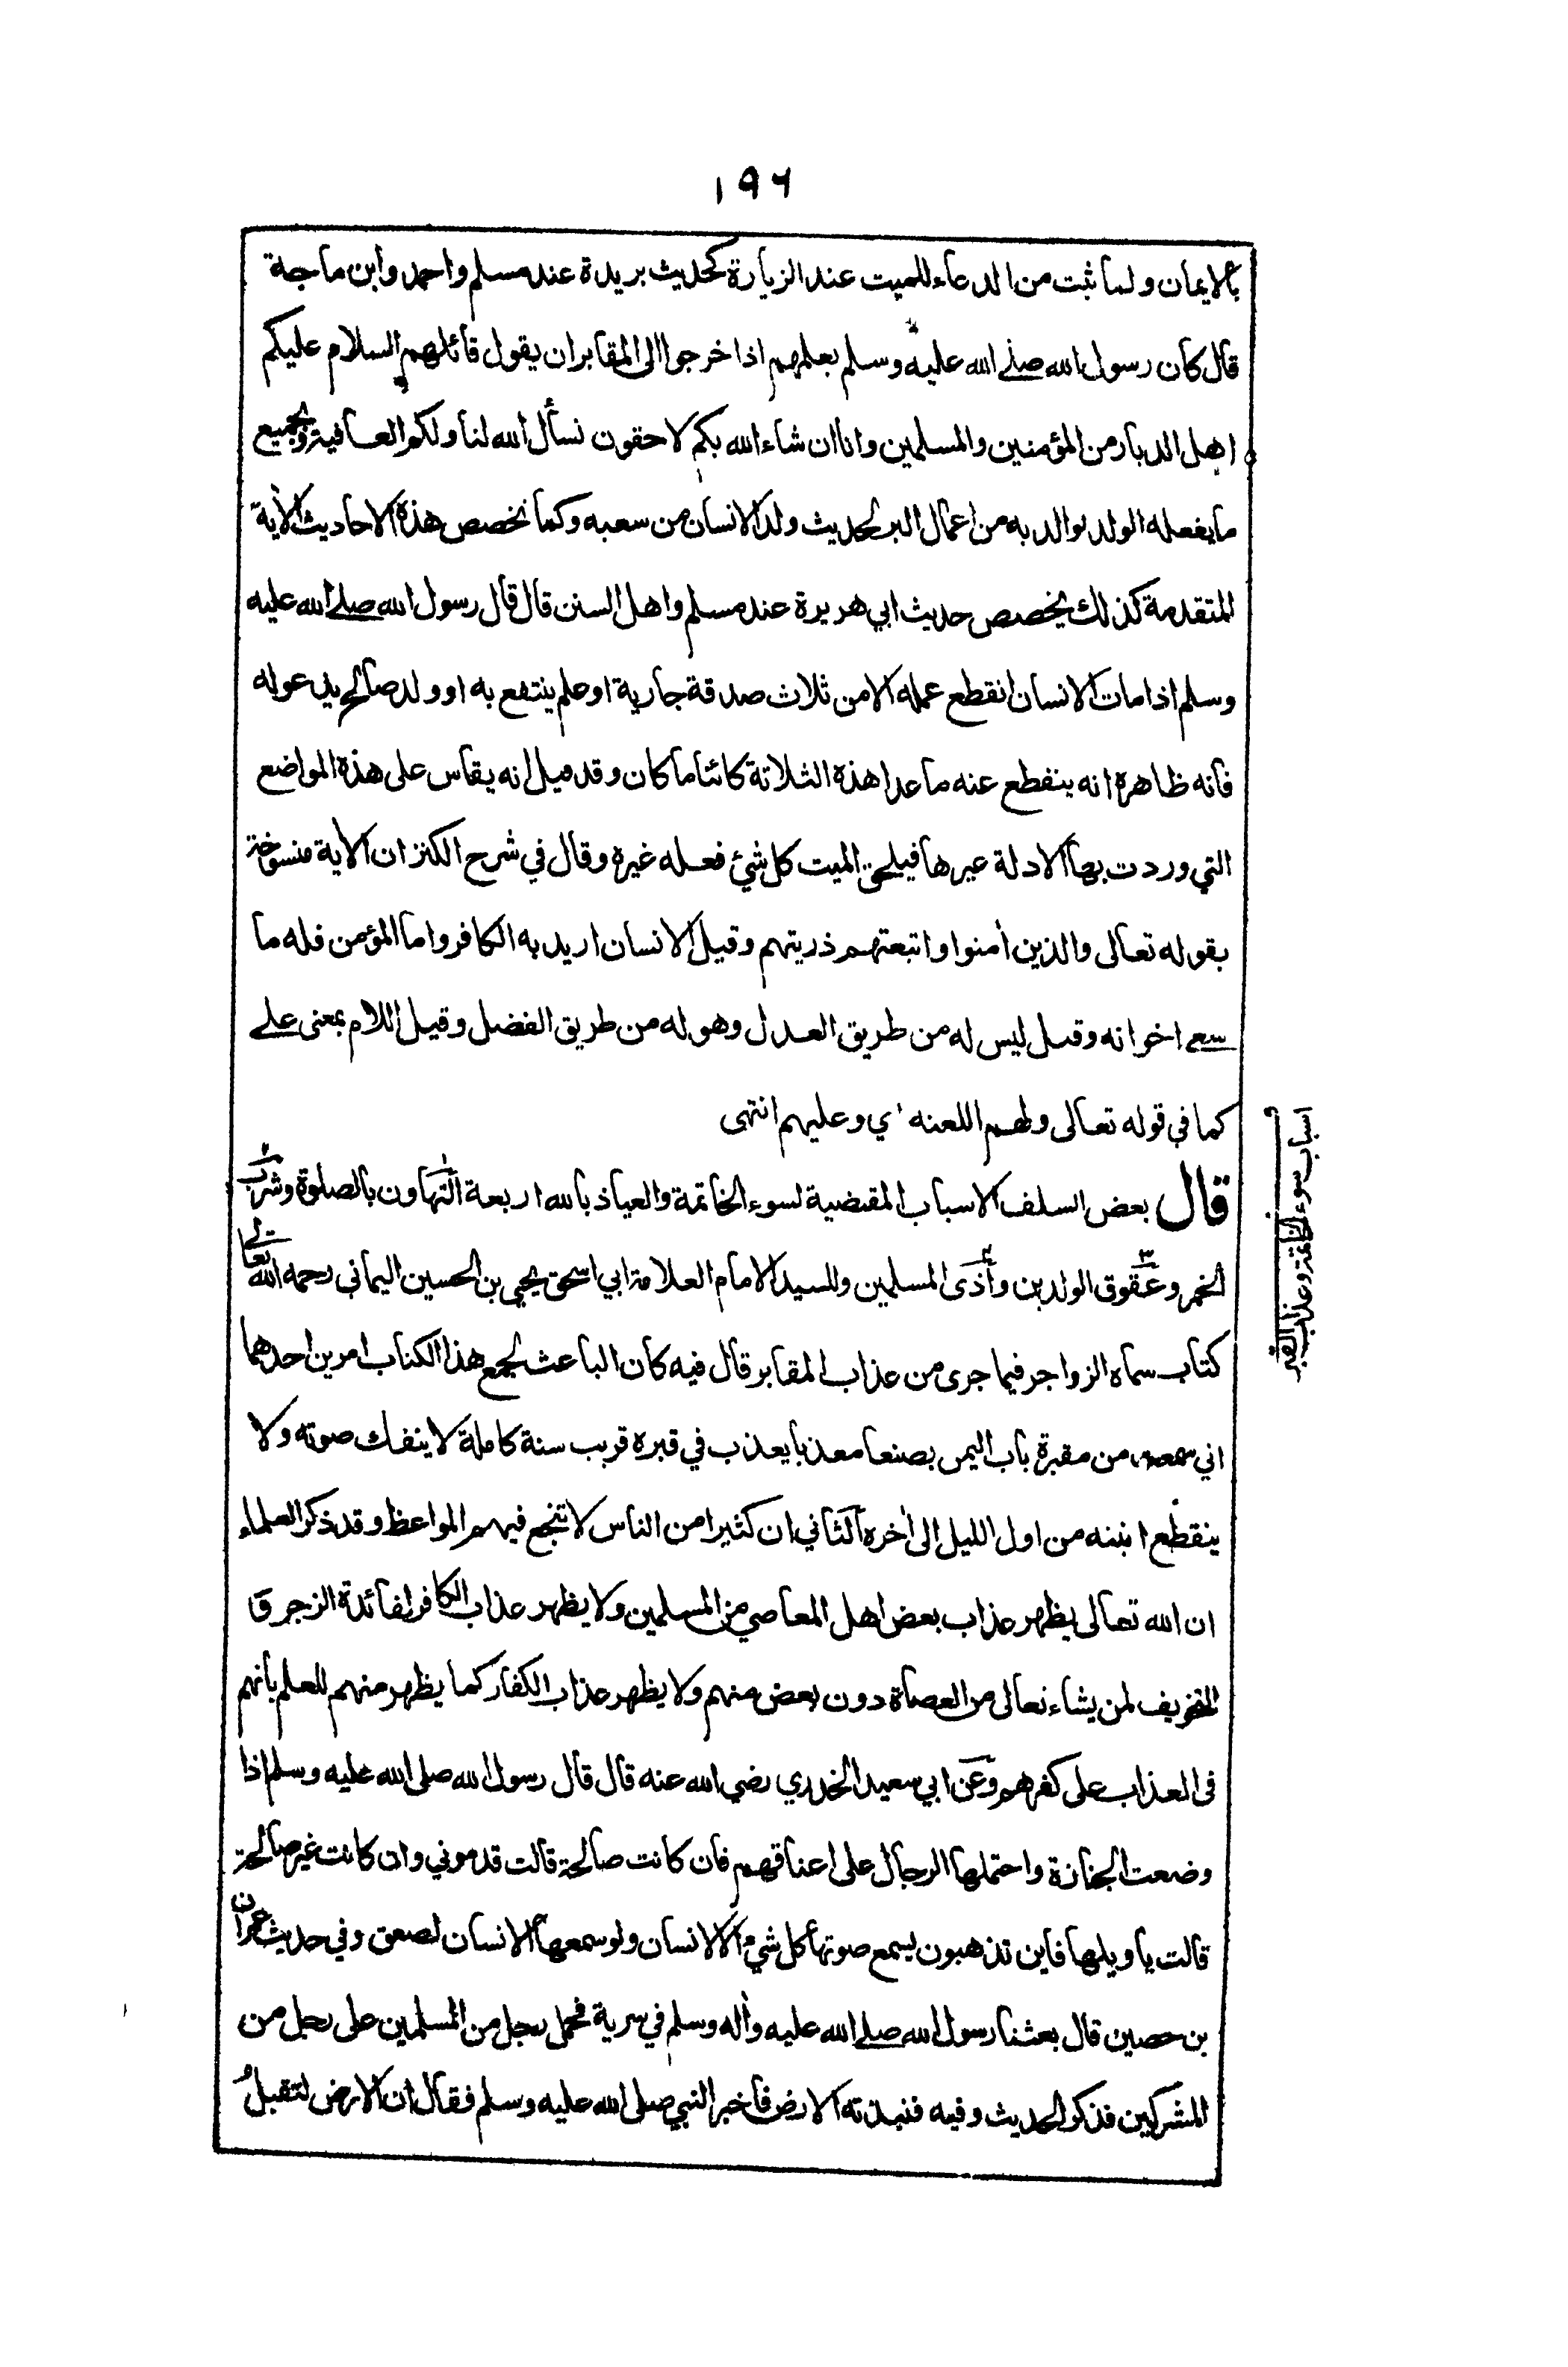 ١٩٦
بالايمان ولما ثبت من الدعاء للميت عند الزيارة كحديث بريدة عند مسلم واحمد وابن ماجة
قال كان رسول الله صلى الله عليه وسلم يعلمهم اذا خرجوا الى المقابر ان يقول قائلهم السلام عليكم
اهل الديار من المؤمنين والمسلمين وانا ان شاء الله بكم لاحقون نسأل الله لنا ولكم العافية وبجميع
ما يفعله الولد لوالديه من اعمال البر لحديث ولد الانسان من سعيه وكما تخصص هذه الاحاديث الأية
المتقدمة كذلك يخصص حديث ابي هريرة عند مسلم واهل السنن قال قال رسول الله صلى الله عليه
وسلم اذا مات الانسان انقطع عمله الا من ثلاث صدقة جارية او علم ينتفع به او ولد صالح يدعو له
فانه ظاهره انه ينقطع عنه ما عدا هذه الثلاثة كائنا ما كان وقد قيل انه يقاس على هذه المواضع
التي وردت بها الادلة غيرها فيلحق الميت كل شيئ فعله غيره وقال في شرح الكنز ان الأية منسوخة
بقوله تعالى والذين أمنوا واتبعتهم ذريتهم وقيل الانسان اريد به الكافر واما المؤمن فله ما
سعى اخوانه وقيل ليس له من طريق العدل وهو له من طريق الفضل وقيل اللام بمعنى على
كما في قوله تعالى ولهم اللعنه اي وعليهم انتهى
قال بعض السلف الاسباب المقتضية لسوء الخاتمة والعياذ بالله اربعة ١ التهاون بالصلوة ٢ وشرب
الخمر ٣ وعقوق الوالدين ٤ وأذى المسلمين وللسيد الامام العلامة ابي اسحق يحيى بن الحسين اليماني رحمه الله تعالى
كتاب سماه الزواجر فيما جرى من عذاب المقابر قال فيه كان الباعث لجمع هذا الكتاب امرين احدهما
اني سمعت من مقبرة باب اليمن بصنعا معذبا يعذب في قبره قريب سنة كاملة لا ينفك صوته ولا
ينقطع انينه من اول الليل الى أخره الثاني ان كثيرا من الناس لا تنجع فيهم المواعظ وقد ذكر العلماء
ان الله تعالى يظهر عذاب بعض اهل المعاصي من المسلمين ولا يظهر عذاب الكافر لفائدة الزجر و
التخويف لمن يشاء تعالى من العصاة دون بعض منهم ولا يظهر عذاب الكفار كما يظهر منهم للعلم بانهم
فى العذاب على كفرهم وعن ابي سعيد الخدري رضي الله عنه قال قال رسول الله صلى الله عليه وسلم اذا
وضعت الجنازة واحتملها الرجال على اعناقهم فان كانت صالحة قالت قدموني وان كانت غير صالحة
قالت يا ويلها فاين تذهبون يسمع صوتها كل شيء الا الانسان ولو سمعها الانسان لصعق وفي حديث عمران
بن حصين قال بعثنا رسول الله صلى الله عليه وأله وسلم في سرية فحمل رجل من المسلمين على رجل من
المشركين فذكر الحديث وفيه فنبذته الارض فاخبر النبي صلى الله عليه وسلم فقال ان الارض لتقبل
اسباب سوء الخاتمة وعذاب القبر